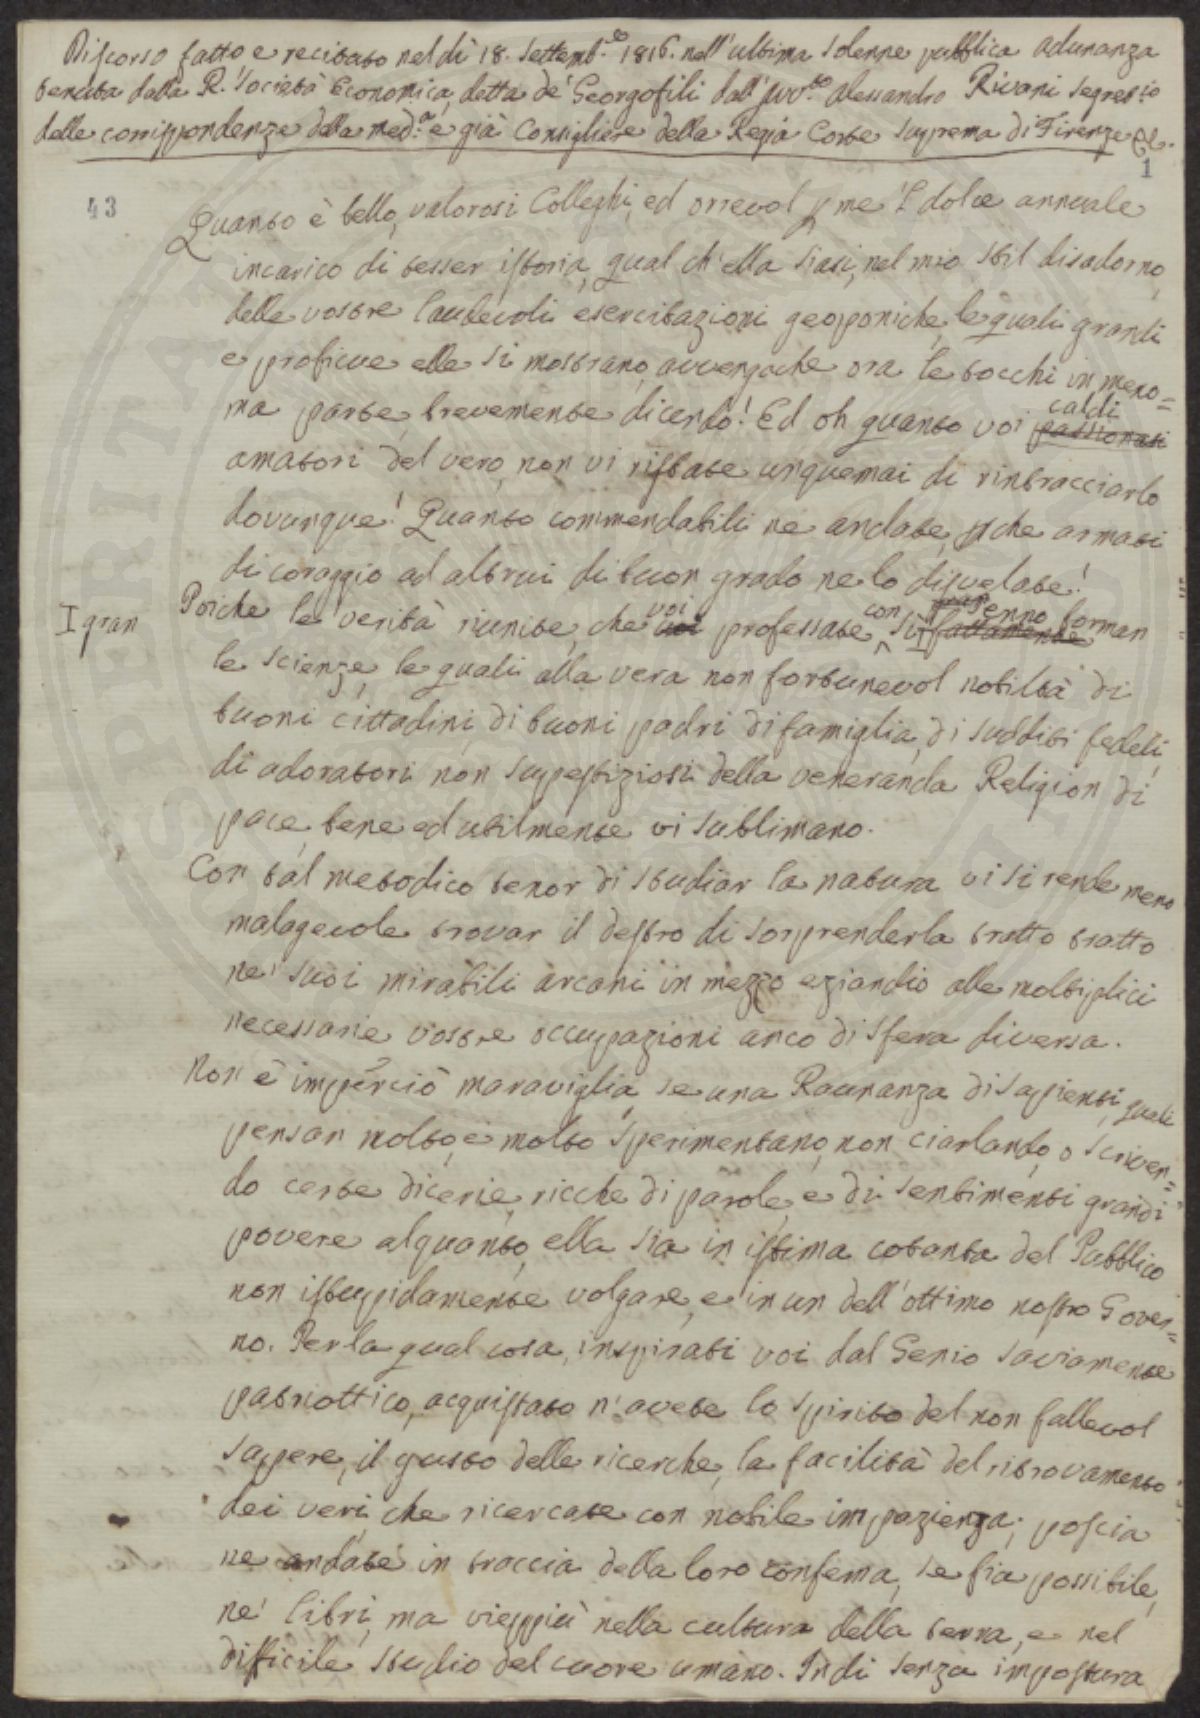 Discorso fatto, e recitato nel dì 18. Settemb.e 1816. nell'ultima solenne pubblica adunanza
tenuta dalla R. Società Economica, detta de' Georgofili dall'Avv.to Alessandro Rivani Segret.io
delle corrispondenze della med.a e già Consigliere della Regia Corte suprema di Firenze &c.
1
43
Quanto è bello, valorosi Colleghi, ed orrevol p me l' dolce annuale
incarico di tesser istoria, qual ch'ella siasi, nel mio stil disadorno,
delle vostre laudevoli esercitazioni geoponiche, le quali grandi
e proficue elle si mostrano, avvengache ora le tocchi in meno=
ma parte, brevemente dicendo! Ed oh quanto voi passionati caldi
amatori del vero, non vi ristate unquemai di rintracciarlo
dovunque! Quanto commendabili ne andate, pche armati
di coraggio ad altrui di buon grado ne lo disvelate!
I gran
Poiche le verità riunite, che voi professate con sì senno forman
le scienze, le quali alla vera non fortunevol nobiltà di
buoni cittadini, di buoni padri di famiglia, di sudditi fedeli,
di adoratori non superstiziosi della veneranda Religion di
pace, bene ed utilmente vi sublimano.
Con tal metodico tenor di studiar la natura vi si rende meno
malagevole trovar il destro di sorprenderla tratto tratto
ne' suoi mirabili arcani in mezzo eziandio alle moltiplici
necessarie vostre occupazioni anco di sfera diversa.
Non è imperciò maraviglia, se una Raunanza di sapienti, quali
pensan molto, e molto sperimentano, non ciarlando, o scriven=
do certe dicerie, ricche di parole, e di sentimenti grandi
povere alquanto, ella sia in istima cotanta del Pubblico
non istupidamente volgare, e in un dell'ottimo nostro Gover=
no. Per la qual cosa, inspirati voi dal Genio saviamente
patriottico, acquistato n'avete lo spirito del non fallevol
sapere, il gusto delle ricerche, la facilità del ritrovamento
dei veri, che ricercate con nobile impazienza; poscia
ne andate in traccia della loro conferma, se fia possibile,
ne' libri, ma vieppiù nella cultura della terra, e nel
difficile studio del cuore umano. Indi senza impostura